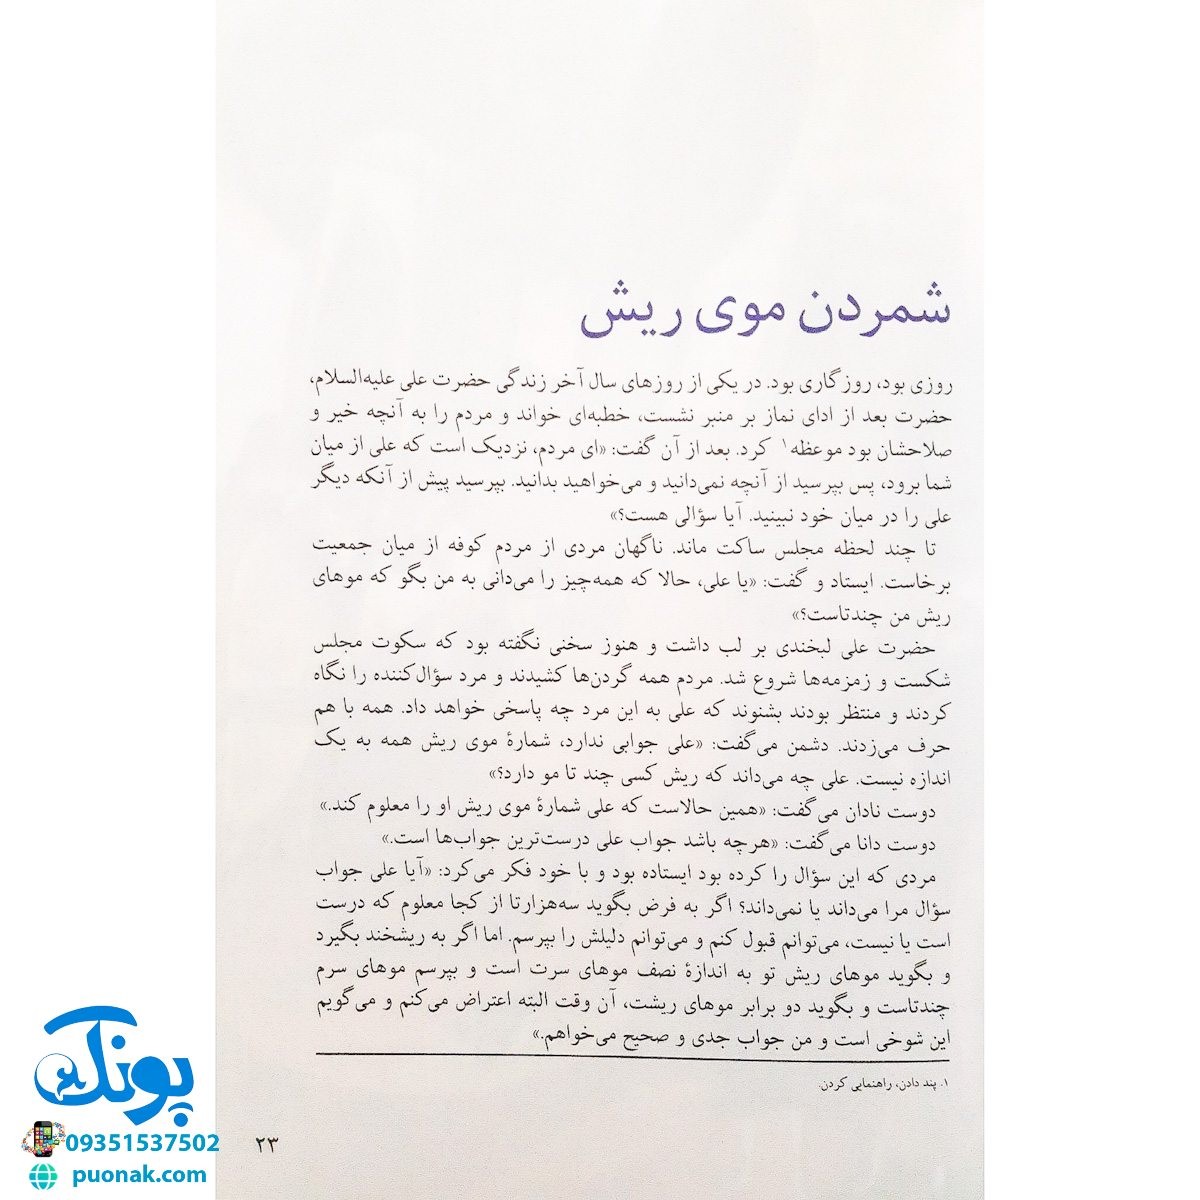 شمردن موی ریش
روزی بود، روزگاری بود. در یکی از روزهای سال آخر زندگی حضرت علی علیه‌السلام،
حضرت بعد از ادای نماز بر منبر نشست، خطبه‌ای خواند و مردم را به آنچه خیر و
صلاحشان بود موعظه۱ کرد. بعد از آن گفت: «ای مردم، نزدیک است که علی از میان
شما برود، پس بپرسید از آنچه نمی‌دانید و می‌خواهید بدانید. بپرسید پیش از آنکه دیگر
علی را در میان خود نبینید. آیا سؤالی هست؟»
تا چند لحظه مجلس ساکت ماند. ناگهان مردی از مردم کوفه از میان جمعیت
برخاست. ایستاد و گفت: «یا علی، حالا که همه‌چیز را می‌دانی به من بگو که موهای
ریش من چندتاست؟»
حضرت علی لبخندی بر لب داشت و هنوز سخنی نگفته بود که سکوت مجلس
شکست و زمزمه‌ها شروع شد. مردم همه گردن‌ها کشیدند و مرد سؤال‌کننده را نگاه
کردند و منتظر بودند بشنوند که علی به این مرد چه پاسخی خواهد داد. همه با هم
حرف می‌زدند. دشمن می‌گفت: «علی جوابی ندارد، شمارهٔ موی ریش همه به یک
اندازه نیست. علی چه می‌داند که ریش کسی چند تا مو دارد؟»
دوست نادان می‌گفت: «همین حالاست که علی شمارهٔ موی ریش او را معلوم کند.»
دوست دانا می‌گفت: «هرچه باشد جواب علی درست‌ترین جواب‌ها است.»
مردی که این سؤال را کرده بود ایستاده بود و با خود فکر می‌کرد: «آیا علی جواب
سؤال مرا می‌داند یا نمی‌داند؟ اگر به فرض بگوید سه‌هزارتا از کجا معلوم که درست
است یا نیست، می‌توانم قبول کنم و می‌توانم دلیلش را بپرسم. اما اگر به ریشخند بگیرد
و بگوید موهای ریش تو به اندازهٔ نصف موهای سرت است و بپرسم موهای سرم
چندتاست و بگوید دو برابر موهای ریشت، آن وقت البته اعتراض می‌کنم و می‌گویم
این شوخی است و من جواب جدی و صحیح می‌خواهم.»
۱. پند دادن، راهنمایی کردن.
۲۳
پونک
09351537502
puonak.com